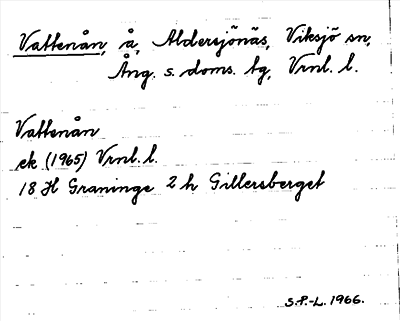 Vattenån, å, Aldersjönäs, Viksjö sn,
Ång. s. doms. tg, Vrnl. l.
Vattenån
ek (1965) Vrnl. l.
18 H Graninge 2 h Gillersberget
S.P.-L. 1966.